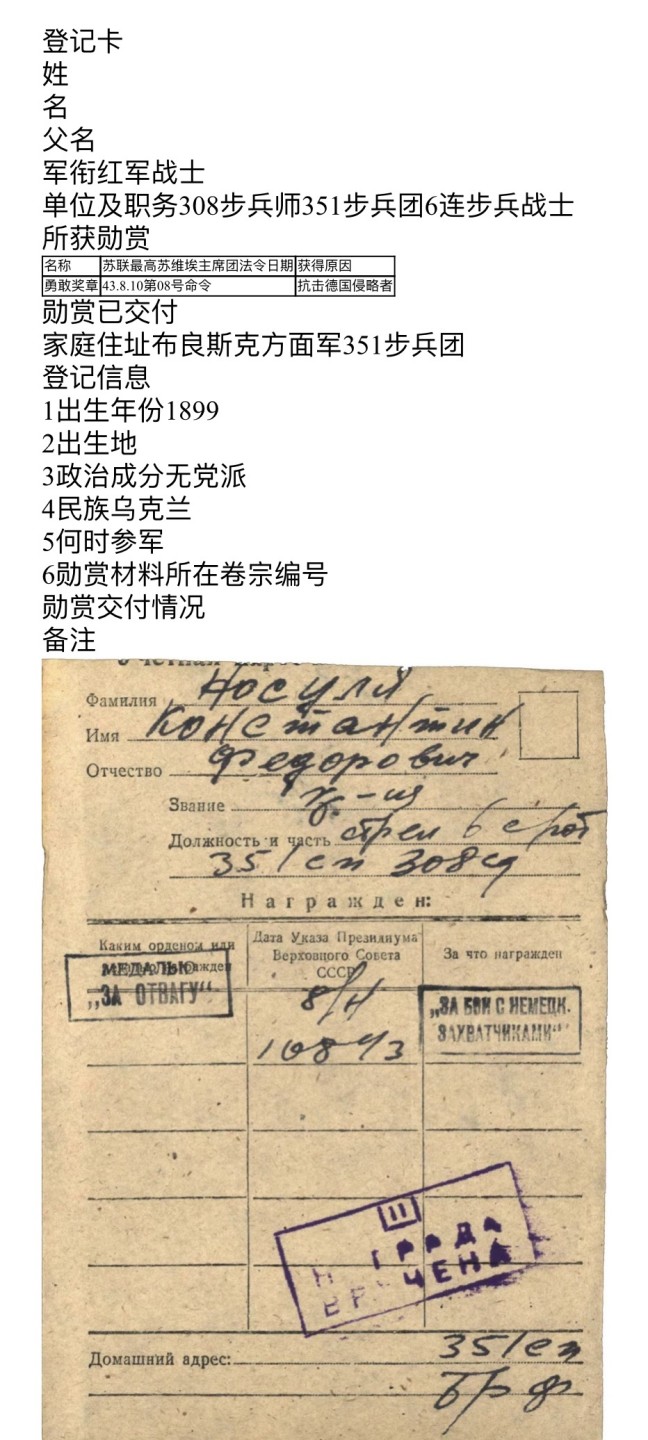 登记卡
姓
名
父名
军衔红军战士
单位及职务308步兵师351步兵团6连步兵战士
所获勋赏
名称 苏联最高苏维埃主席团法令日期 获得原因
勇敢奖章 43.8.10第08号命令 抗击德国侵略者
勋赏已交付
家庭住址布良斯克方面军351步兵团
登记信息
1出生年份1899
2出生地
3政治成分无党派
4民族乌克兰
5何时参军
6勋赏材料所在卷宗编号
勋赏交付情况
备注
Фамилия Носуля
Имя Константин
Отчество Федорович
Звание
Должность и часть стрел 6 с/рот
351 сп 308 сд
Награжден:
Каким орденом или Дата Указа Президиума Верховного Совета СССР За что награжден
МЕДАЛЬЮ „ЗА ОТВАГУ“
8/н
10843
„ЗА БОИ С НЕМЕЦК.
ЗАХВАТЧИКАМИ“
II
НАГРАДА
ВРУЧЕНА
Домашний адрес: 351 сп
БрФ